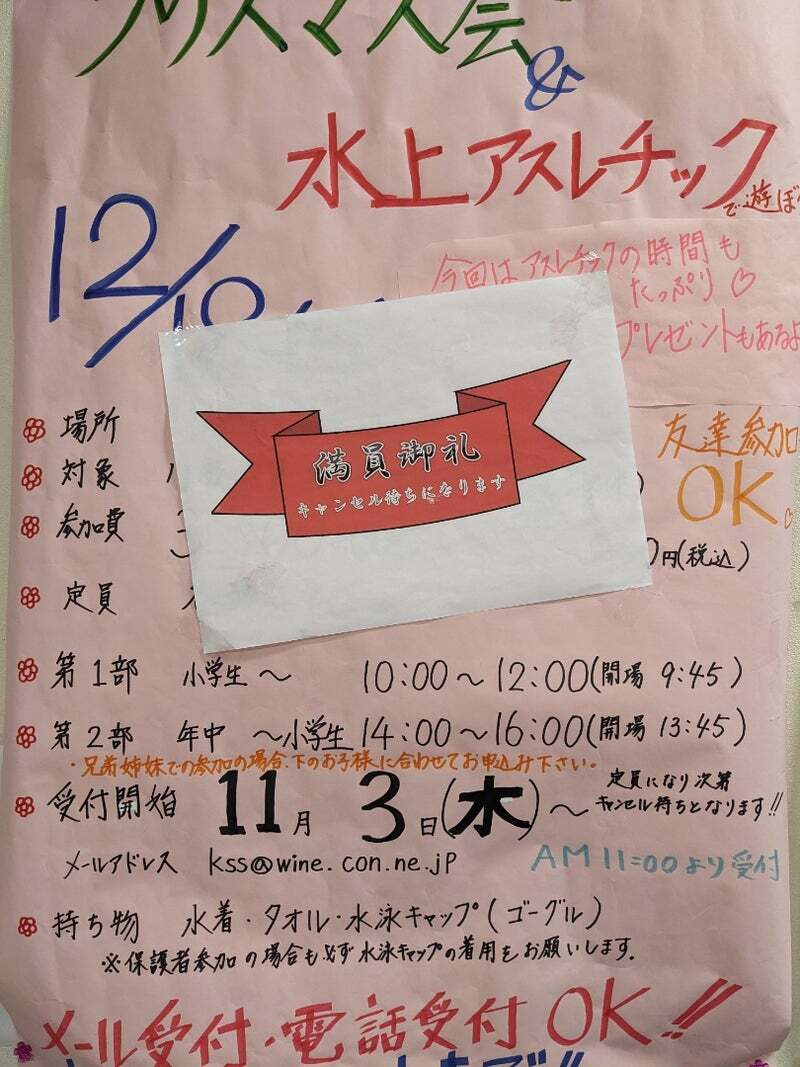 クリスマス会
&
水上アスレチック
で遊ぼ
12/
今回はアスレチックの時間も
たっぷり♡
プレゼントもあるよ
満員御礼
キャンセル待ちになります
場所
対象
参加費
円(税込)
定員
友達参加
OK♡
第1部 小学生〜 10:00〜12:00(開場 9:45)
第2部 年中 〜小学生 14:00〜16:00(開場 13:45)
・兄弟姉妹での参加の場合、下のお子様に合わせてお申込み下さい。
受付開始 11月 3日(木)〜 定員になり次第
キャンセル待ちとなります!!
メールアドレス kss@wine.con.ne.jp AM11:00より受付
持ち物 水着・タオル・水泳キャップ(ゴーグル)
※保護者参加の場合も必ず水泳キャップの着用をお願いします。
メール受付・電話受付OK!!